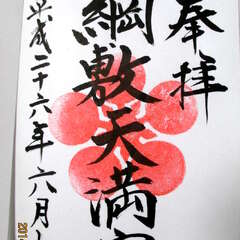 奉拝
綱敷天満宮
平成二十六年六月